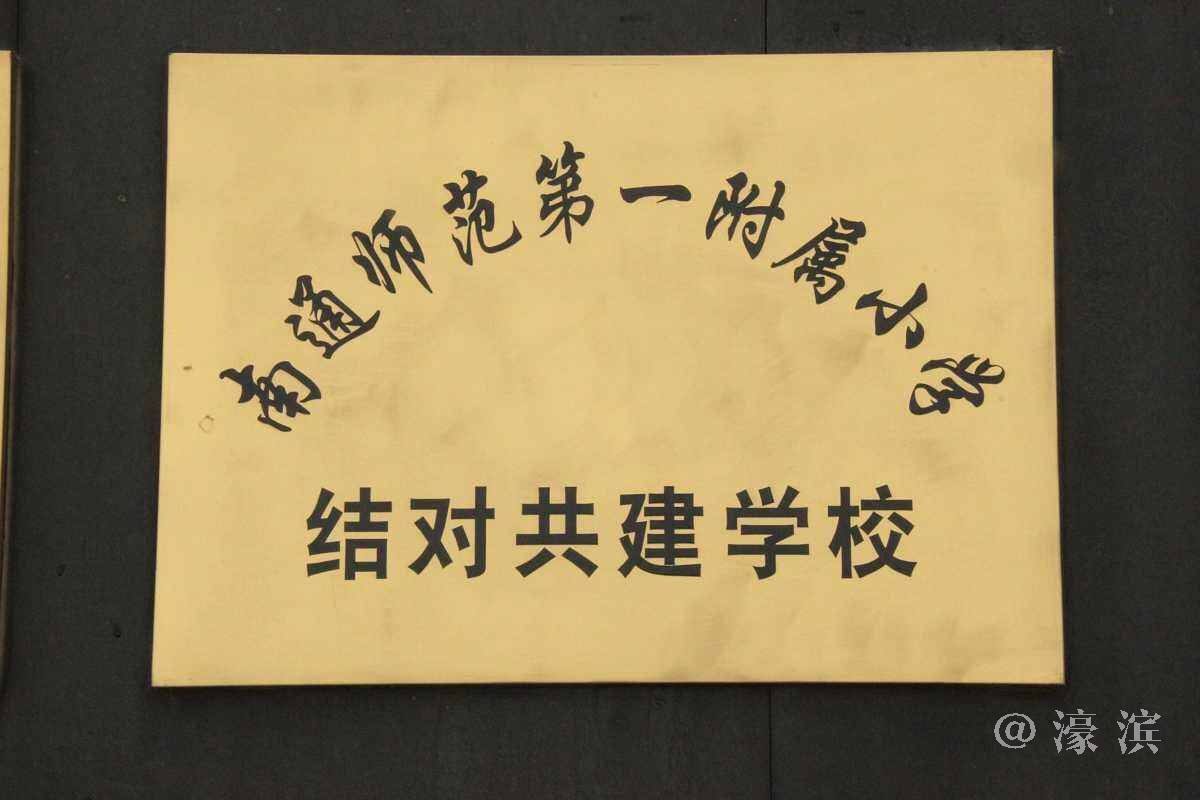 南通师范第一附属小学
结对共建学校
@濠滨